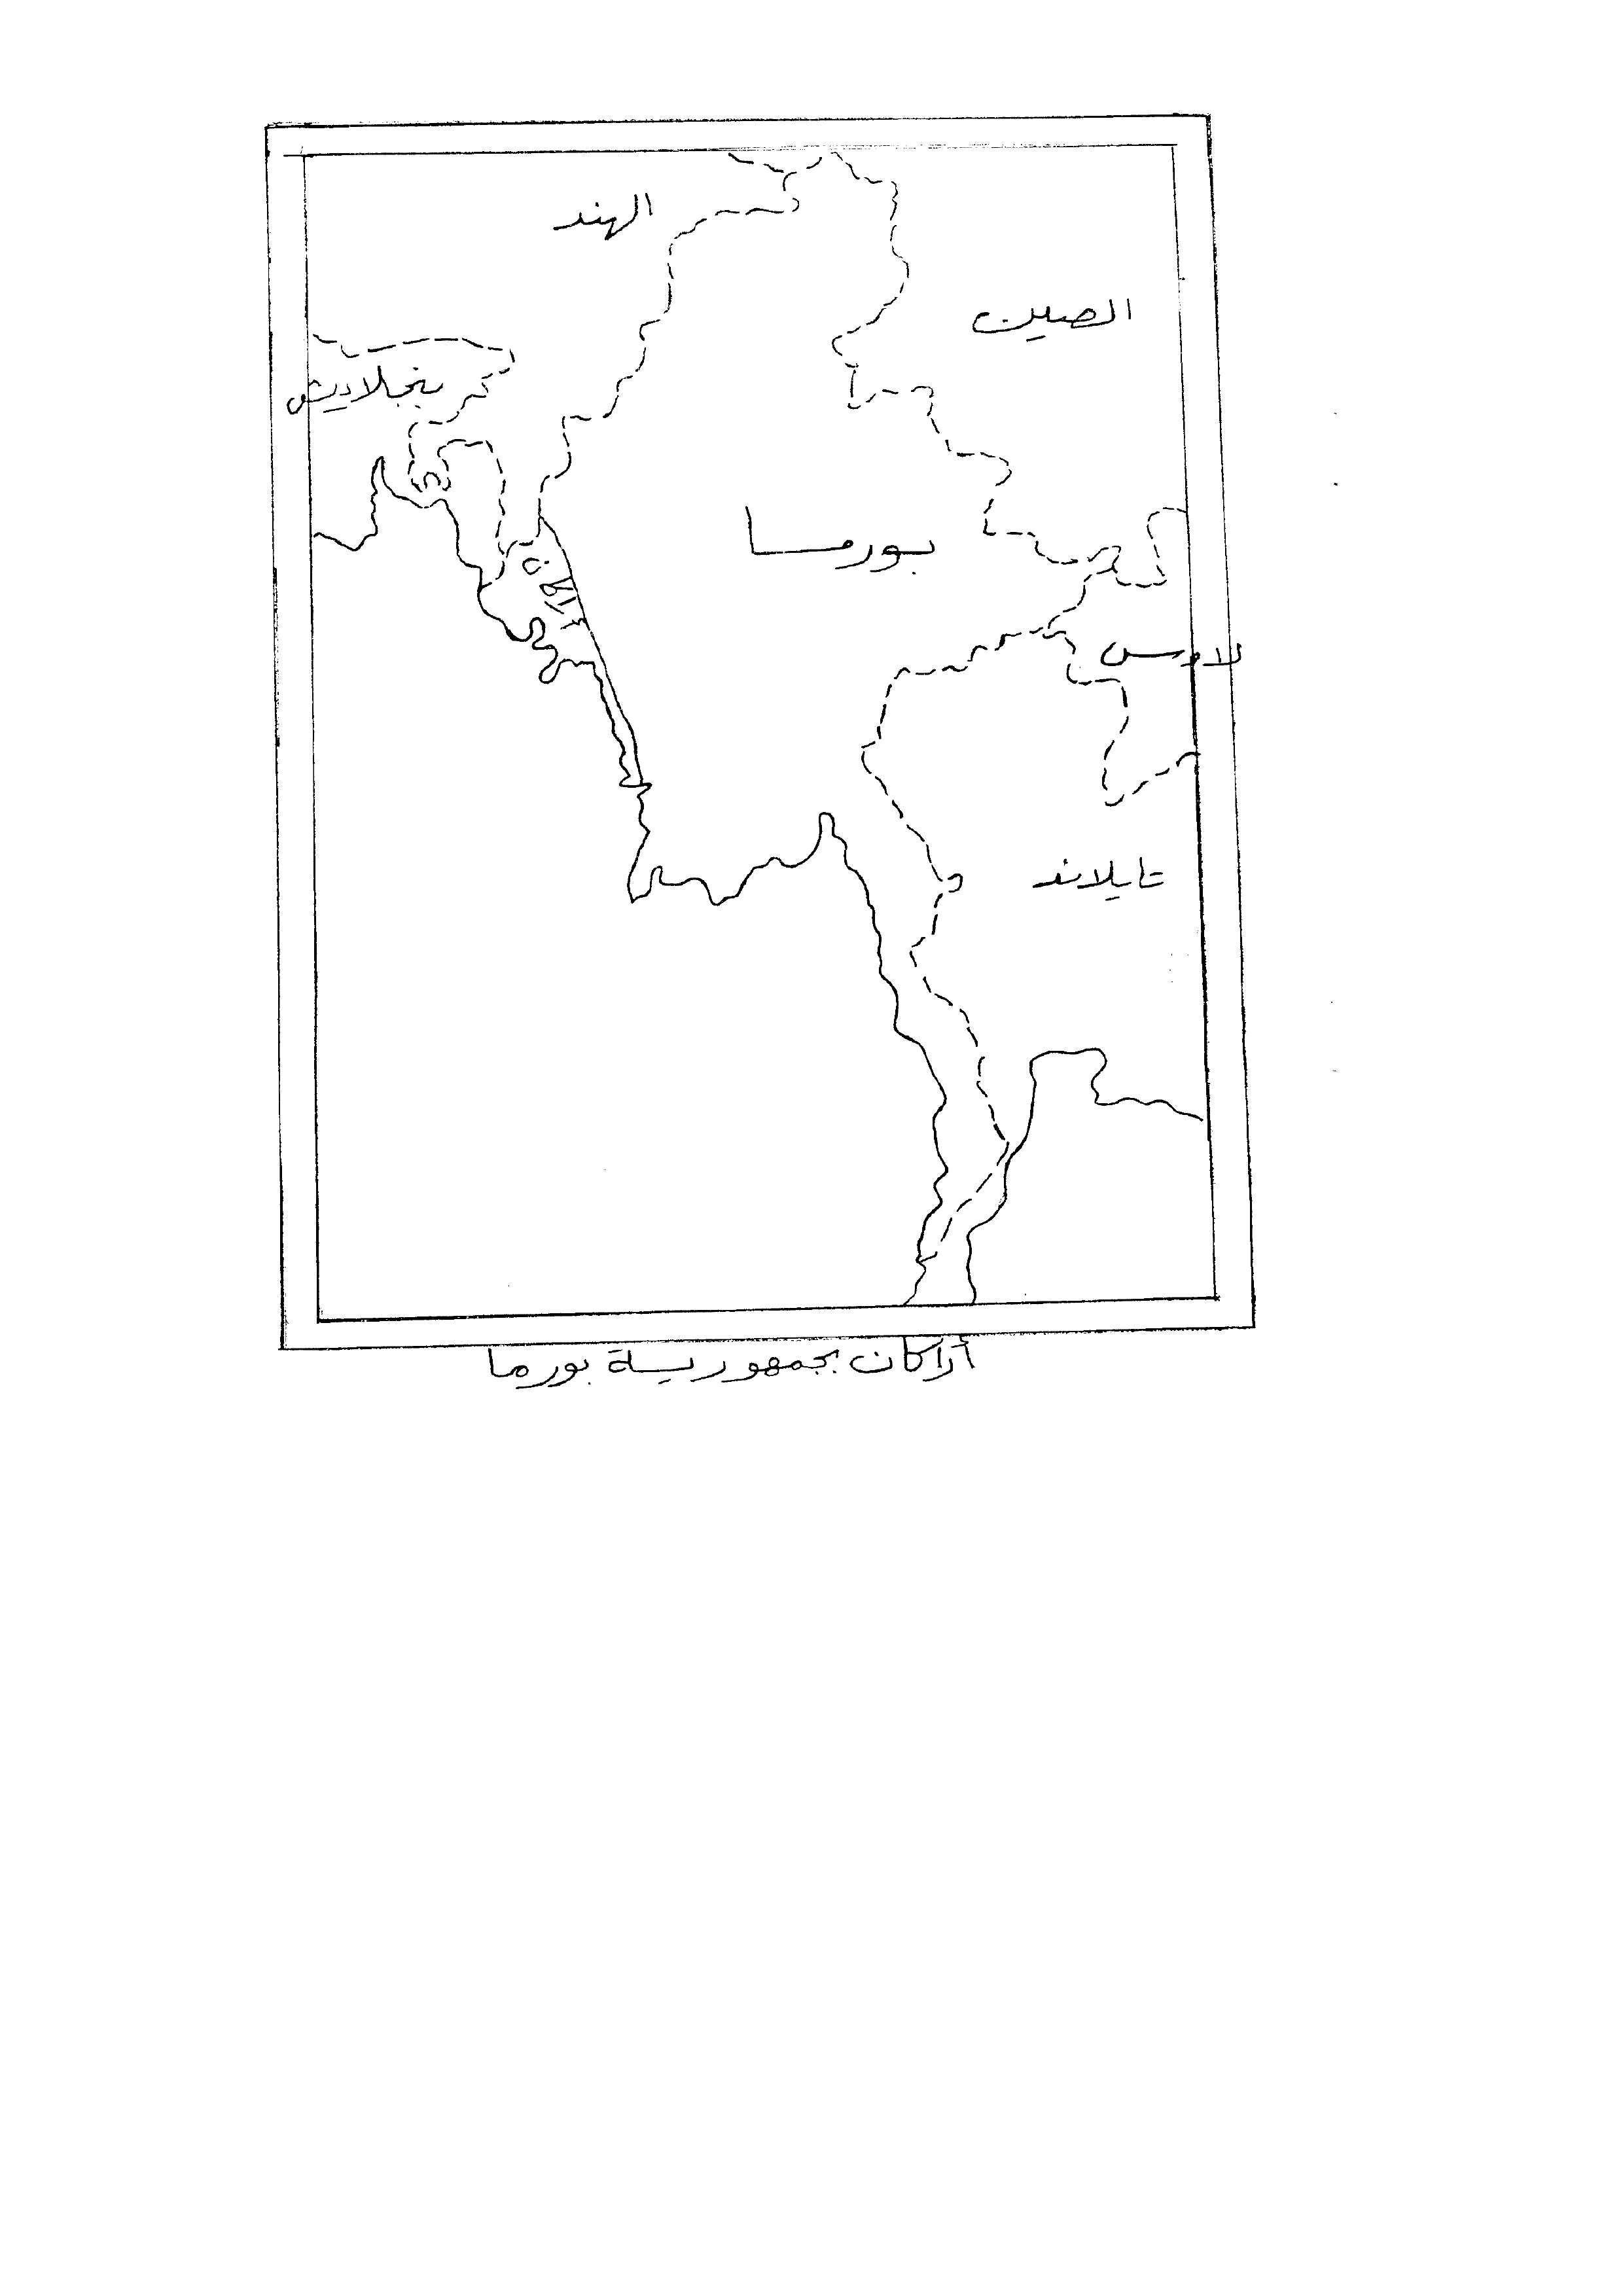 الهند
الصين
بنجلاديش
بورمسا
أراكان
لاوس
تايلاند
أراكان بجمهورية بورما